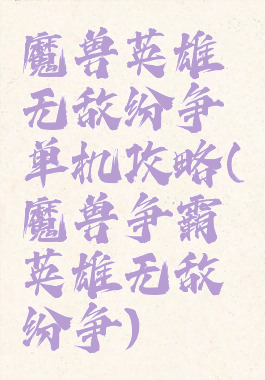 魔兽英雄
无敌纷争
单机攻略(
魔兽争霸
英雄无敌
纷争)